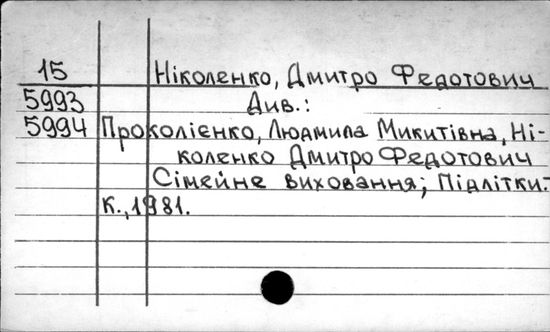 15 Ніколенко, Дмитро Федотович
5993 Див.:
5994 Проколієнко, Людмила Микитівна, Ні-
коленко Дмитро Федотович
Сімейне виховання; Підлітки.-
К., 1981.